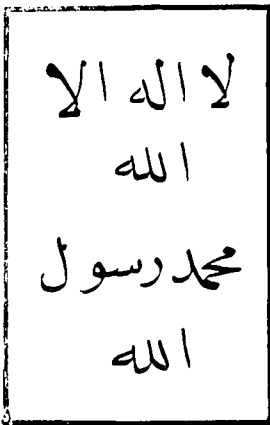 لا اله الا
الله
محمد رسول
الله